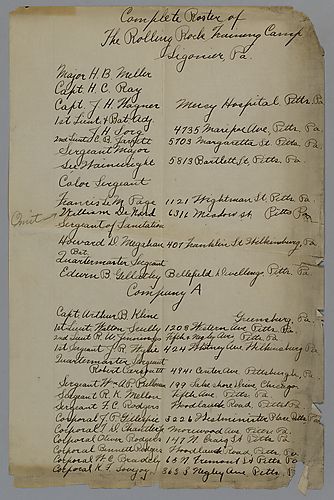 Complete Roster of
The Rolling Rock Training Camp
Ligonier Pa.
Major H. B. Meller
Capt H. C. Ray
Capt. J. H. Wagner Mercy Hospital Pitts. Pa.
1st Lieut. & Bat. Adj.
J. H. Sorg 4735 Maripoe Ave, Pitts. Pa.
2nd Lieut. C. B. Jarrett 5703 Margaretta St. Pitts. Pa.
Sergeant Major
Wainwright 5813 Bartlett St, Pitts. Pa.
Color Sergeant
Francis Page 1121 Wightman St. Pitts. Pa.
Omit William De 6316 St Pitts Pa
Sergeant of Sanitation
Howard D. 407 Franklin St Wilkinsburg, Pa
Bat.
Quartermaster Sergeant
Edwin B. Bellefield Dwellings Pitts. Pa.
Company A
Capt. Arthur B. Kline Greensburg, Pa.
1st Lieut. Scully 1208 Western Ave Pitts. Pa.
2nd Lieut. R. W. Jennings Fifth & Negley Ave, Pitts. Pa.
1st Sergeant J. R. 424 Whitney Ave Wilkinsburg Pa.
Quartermaster Sergeant
Robert Carson III 4941 Center Ave Pittsburgh, Pa.
Sergeant Wm A. P. 199 Lake shore Drive Chicago
Sergeant R. K. Mellon Fifth Ave Pitts. Pa.
Sergeant F. C. Rodgers Woodland Road, Pitts. Pa.
Corporal J. P. 5826 Westminster Place Pitts. Pa.
Corporal J. D. Chantler Morewood Ave Pitts. Pa.
Corporal Oliver Rodgers 147 N. Craig St Pitts. Pa
Corporal Bennett Rodgers Woodland Road, Pitts. Pa.
Corporal H. C. St Pitts. Pa
Corporal K. F. 363 S Negley Ave Pitts. P